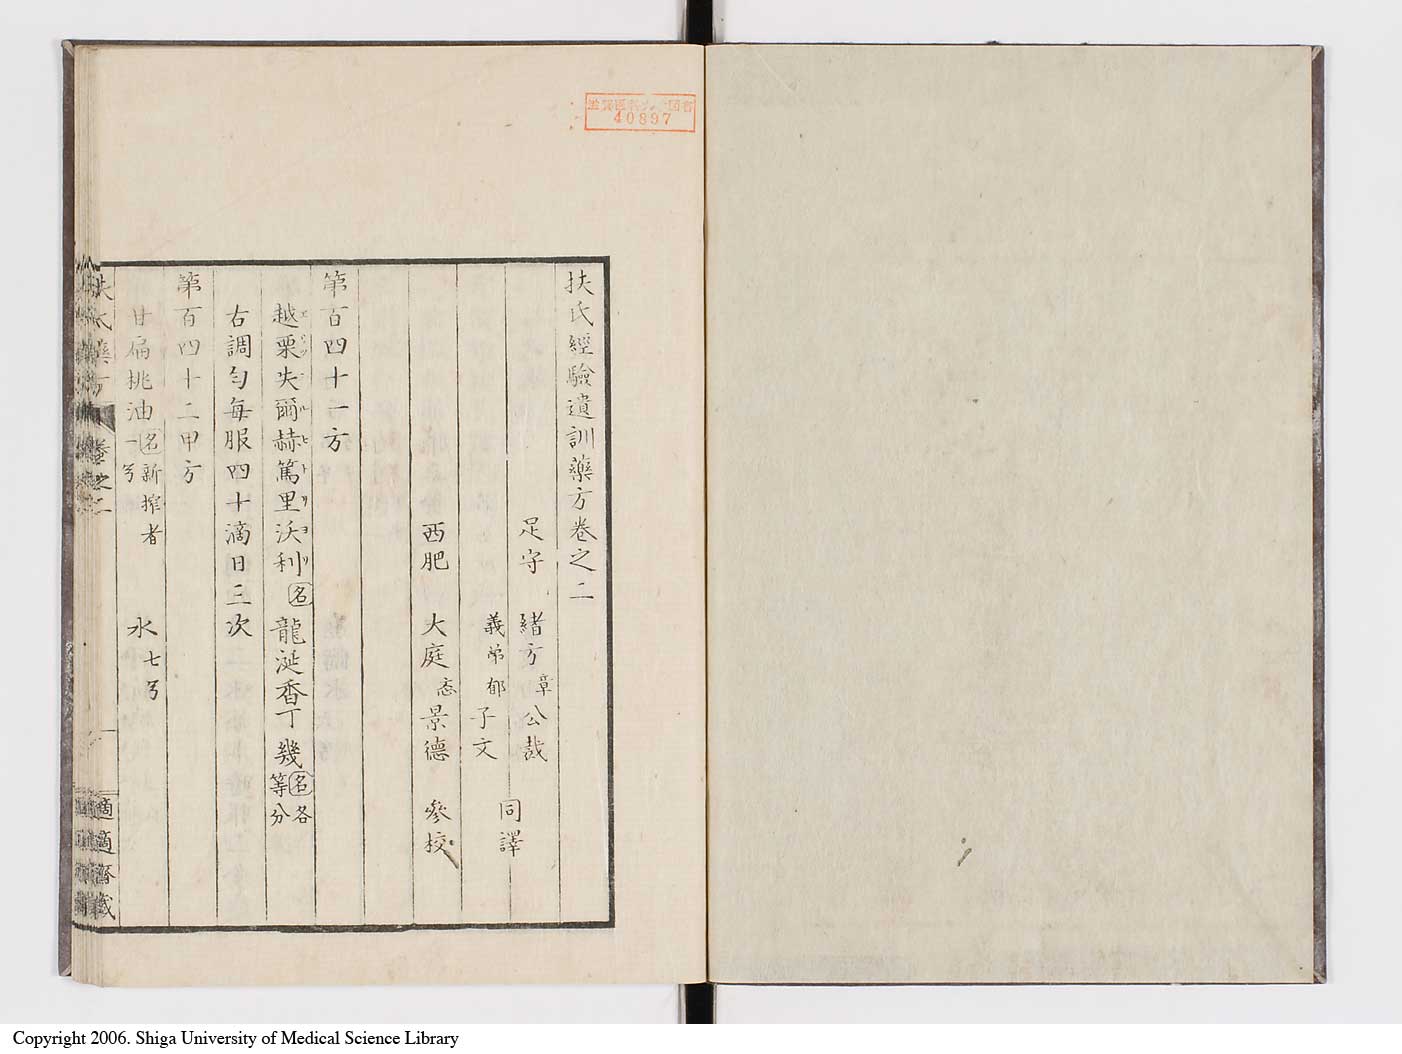 40897
扶氏經驗遺訓藥方卷之二
足守 緒方章公裁
義弟郁子文 同譯
西肥 大庭忞景德 參校
第百四十一方
越栗失爾赫篤里沃利名 龍涎香丁幾名各等分
右調勻每服四十滴日三次
第百四十二甲方
甘扁桃油一名新搾者 水七
扶氏藥方 卷之二 一 適適齋藏
Copyright 2006. Shiga University of Medical Science Library